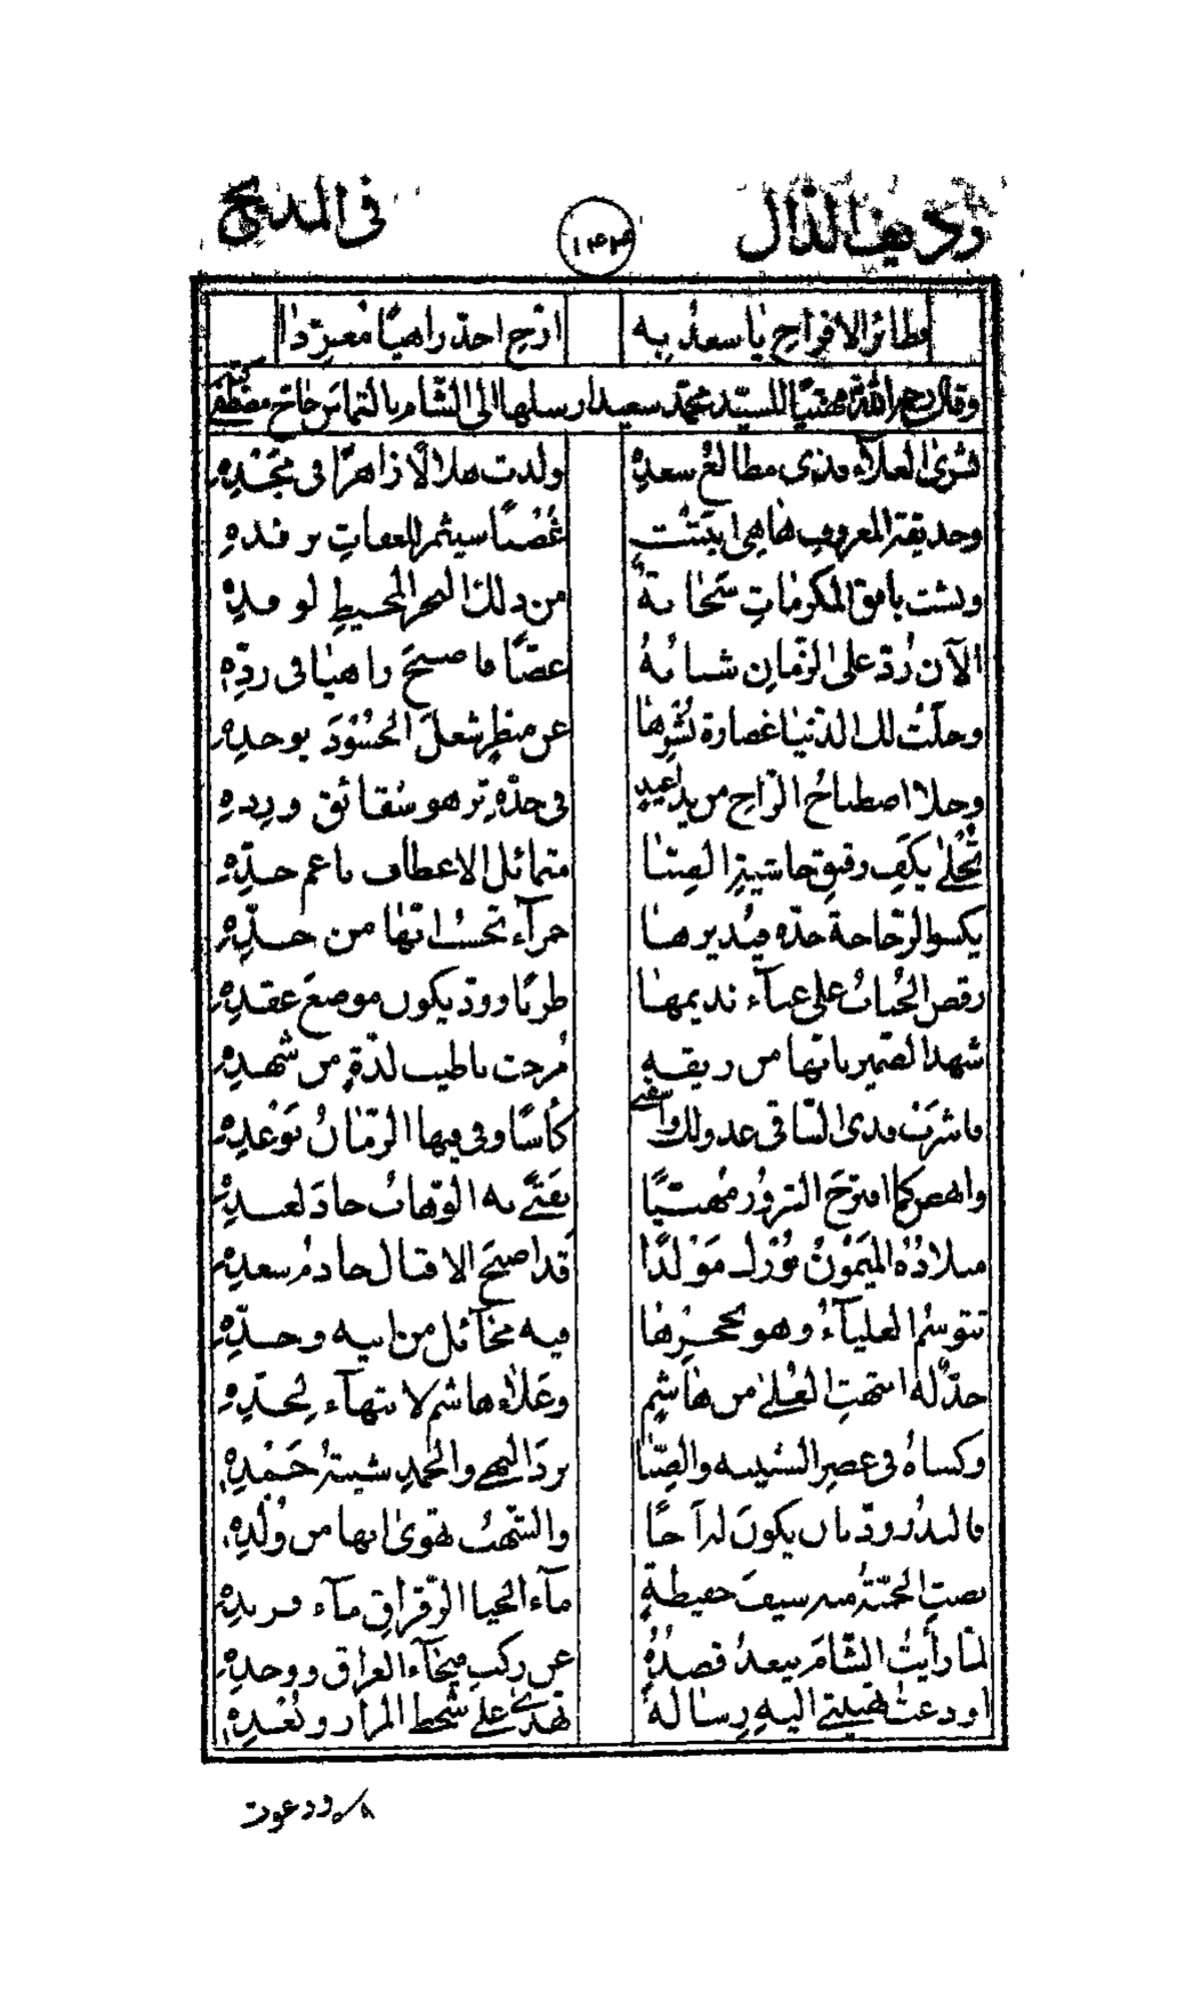 رديف الدال ١٤٣ في المديح
وطائر الافراح يا سعد به ارّخ احد راهيًا مغرّدا
وقال رحمه الله مهنّيًا للسيّد محمّد سعيد ارسلها الى الشام بالتماس حاج مصطفى كبّه
بشرى العلاء فذى مطالع سعده ولدت هلالًا زاهرًا في مجده
وحديقة المعروف ها هي انبتت غُصُنًا سيثمر للعفاتِ برفده
ونشت بافق المكرماتِ سَحابةٌ من ذلك البحر المحيطِ لوفده
الآن رُدّ على الزمانِ شبابُهُ غضّا فاصبحَ زاهيًا في ردّهِ
وجلَت لك الدنيا غضارة بشرها عن منظرٍ شغلَ الحسُودَ بوجدِه
وحلا اصطباحُ الرّاح من يد اغيدٍ في خدّهِ تزهو شقائق وردهِ
تُجلى بكفّ رقيقِ حاشيةِ الصِبا متمائل الاعطاف ناعم خدّهِ
يكسو الزّجاجة خدّه فيُديرها حمراء تحسبُ انّها من خدّهِ
رقص الحُبابُ على غناء نديمها طربًا وودّ يكون موضعَ عقدهِ
شهد الضمير بانّها من ريقه مُزجت باطيب لذّةٍ من شهدهِ
فاشرَب فدى الساقي عذولك واسقني كأسًا وفى فيها الزّمانُ بوَعْدهِ
وانهض كما اقترحَ السّرورُ مُهنّيًا بفتًى به الوهّابُ جادَ لعبدهِ
ميلادُهُ الميمونُ بُورك مَوْلدًا قد اصبحَ الاقبال خادمُ سعدهِ
تتوسّمُ العلياءُ وهو بحجرِها فيه مخائل من ابيه وجدّهِ
جدٌّ له انتهتِ العُلى من هاشمٍ وعَلاء هاشم لا انتهاء لِحدّهِ
وكساهُ في عصرِ الشبيبه والصِّبا بردَ النهى والحمدِ شيبةُ حَمْدهِ
فالبدرُ ودّ بان يكونَ له اخًا والشّهبُ تهوى انها من وُلدِهِ
نضتِ الحميّةُ منه سيفَ حفيظةٍ ماء الحيا الرّقراقِ ماء فرندهِ
لمّا رأيتُ الشّامَ يبعدُ قصدُهُ عن ركبِ فيحاء العراق ووخدهِ
اودعتُ تهنيتي اليهِ رِسالةً تهدى على شحط المزار وبُعْدهِ
ودعوت